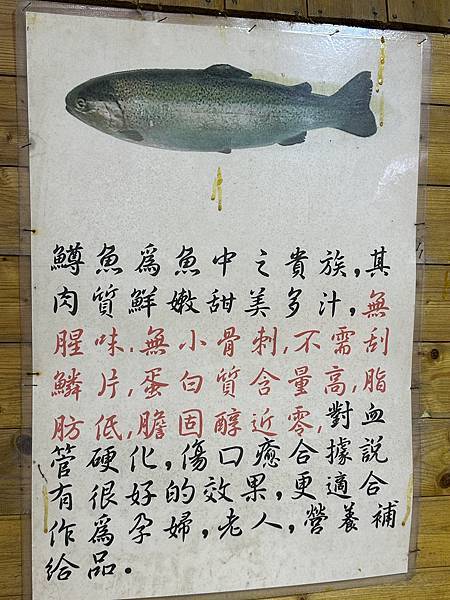 鱒魚爲魚中之貴族,其
肉質鮮嫩甜美多汁,無
腥味,無小骨刺,不需刮
鱗片,蛋白質含量高,脂
肪低,膽固醇近零,對血
管硬化,傷口癒合據說
有很好的效果,更適合
作爲孕婦,老人,營養補
給品。